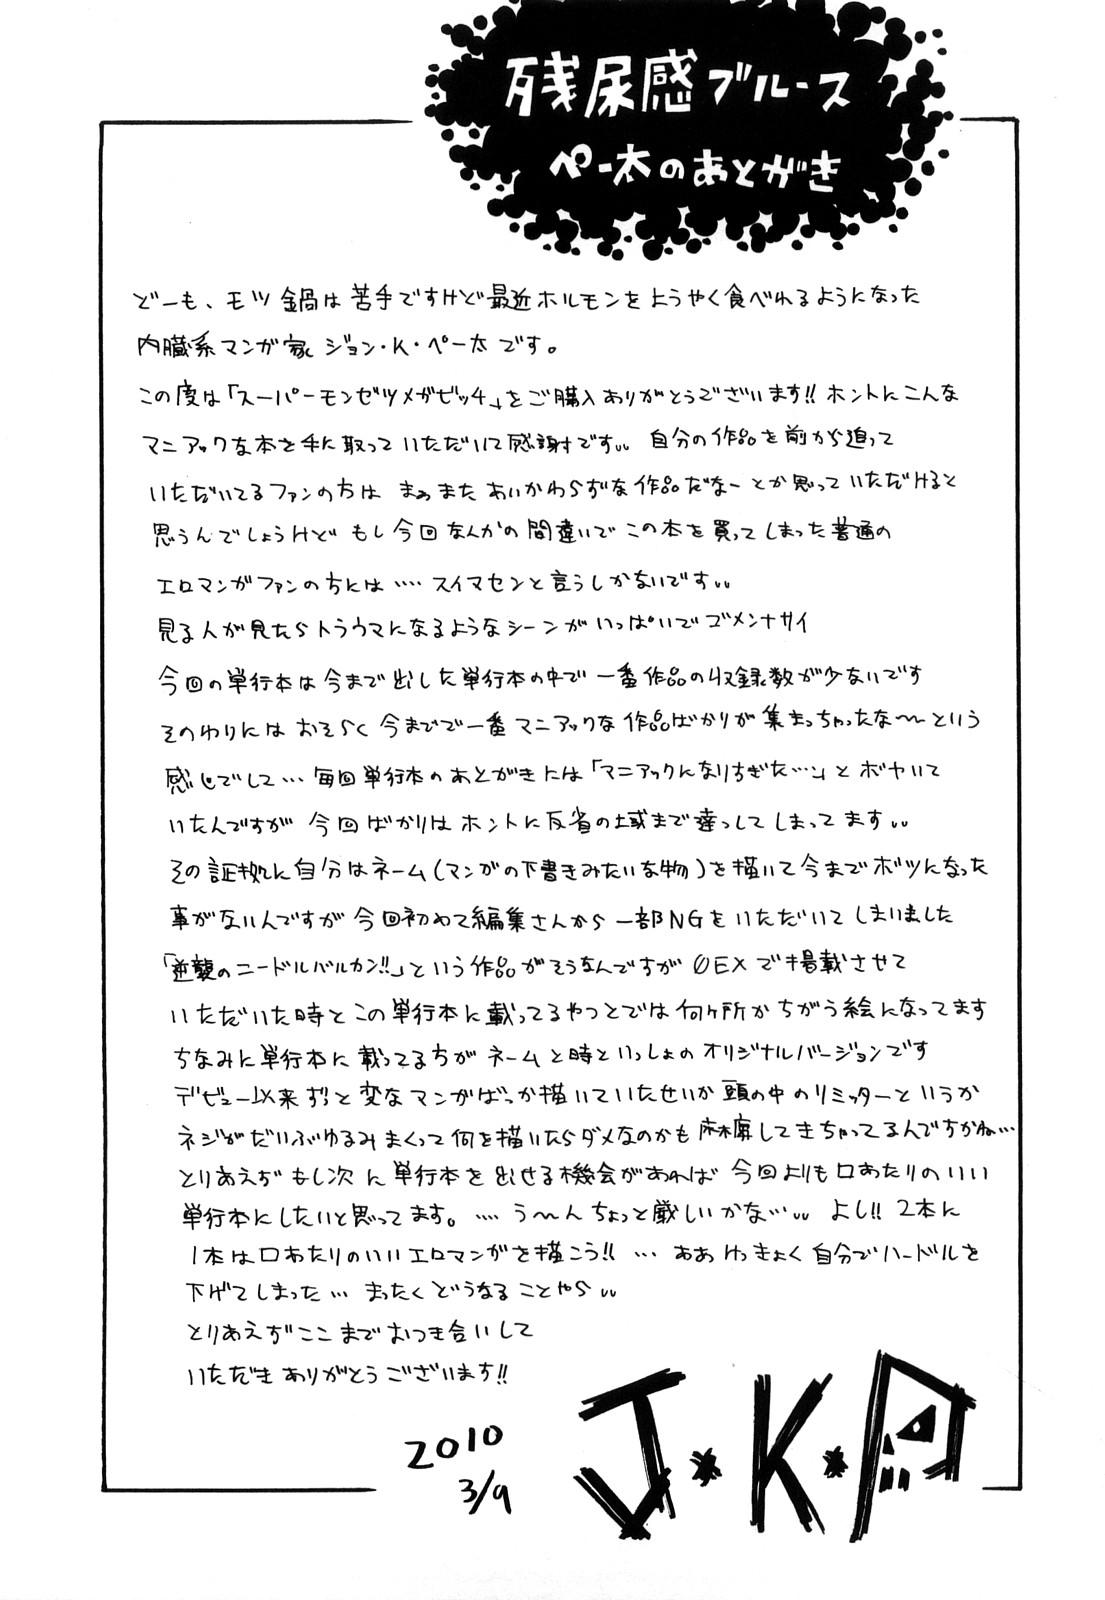 残尿感ブルース
ペー太のあとがき
どーも、モツ鍋は苦手ですけど最近ホルモンをようやく食べれるようになった
内臓系マンガ家 ジョン・K・ペー太です。
この度は「スーパーモンゼツメガビッチ」をご購入ありがとうございます!! ホントにこんな
マニアックな本を手に取っていただいて感謝です〟 自分の作品を前から追って
いただいてるファンの方は まぁまたあいかわらずな作品だなーとか思っていただけると
思うんでしょうけど もし今回なんかの間違いでこの本を買ってしまった普通の
エロマンガファンの方には‥‥スイマセンと言うしかないです〟
見る人が見たらトラウマになるようなシーンがいっぱいでゴメンナサイ
今回の単行本は今まで出した単行本の中で一番作品の収録数が少ないです
そのわりにはおそらく今までで一番マニアックな作品ばかりが集まっちゃったな〜という
感じでして…毎回単行本のあとがきには「マニアックになりすぎた…」とボヤいて
いたんですが 今回ばかりはホントに反省の域まで達っしてしまってます〟
その証拠に自分はネーム(マンガの下書きみたいな物)を描いて今までボツになった
事がないんですが今回初めて編集さんから一部NGをいただいてしまいました
「逆襲のニードルバルカン!!」という作品がそうなんですが 0EXで掲載させて
いただいた時とこの単行本に載ってるやつとでは何ヶ所かちがう絵になってます
ちなみに単行本に載ってる方がネームと時といっしょのオリジナルバージョンです
デビュー以来ずっと変なマンガばっか描いていたせいか頭の中のリミッターというか
ネジがだいぶゆるみまくって何を描いたらダメなのかも麻痺してきちゃってるんですかね…
とりあえずもし次に単行本を出せる機会があれば今回よりも口あたりのいい
単行本にしたいと思ってます。‥‥う〜んちょっと厳しいかな…〟 よし!! 2本に
1本は口あたりのいいエロマンガを描こう!! … ああけっきょく自分でハードルを
下げてしまった…まったくどうなることやら〟
とりあえずここまでおつき合いして
いただきありがとうございます!!
2010
3/9
J*K*P